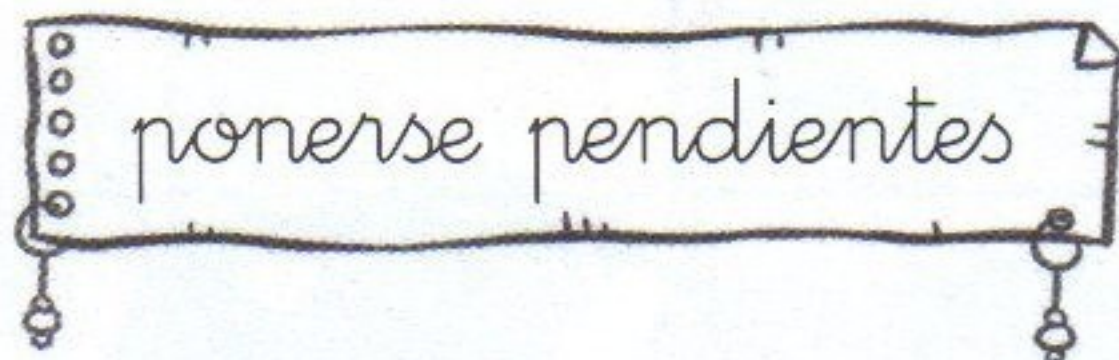 ponerse pendientes